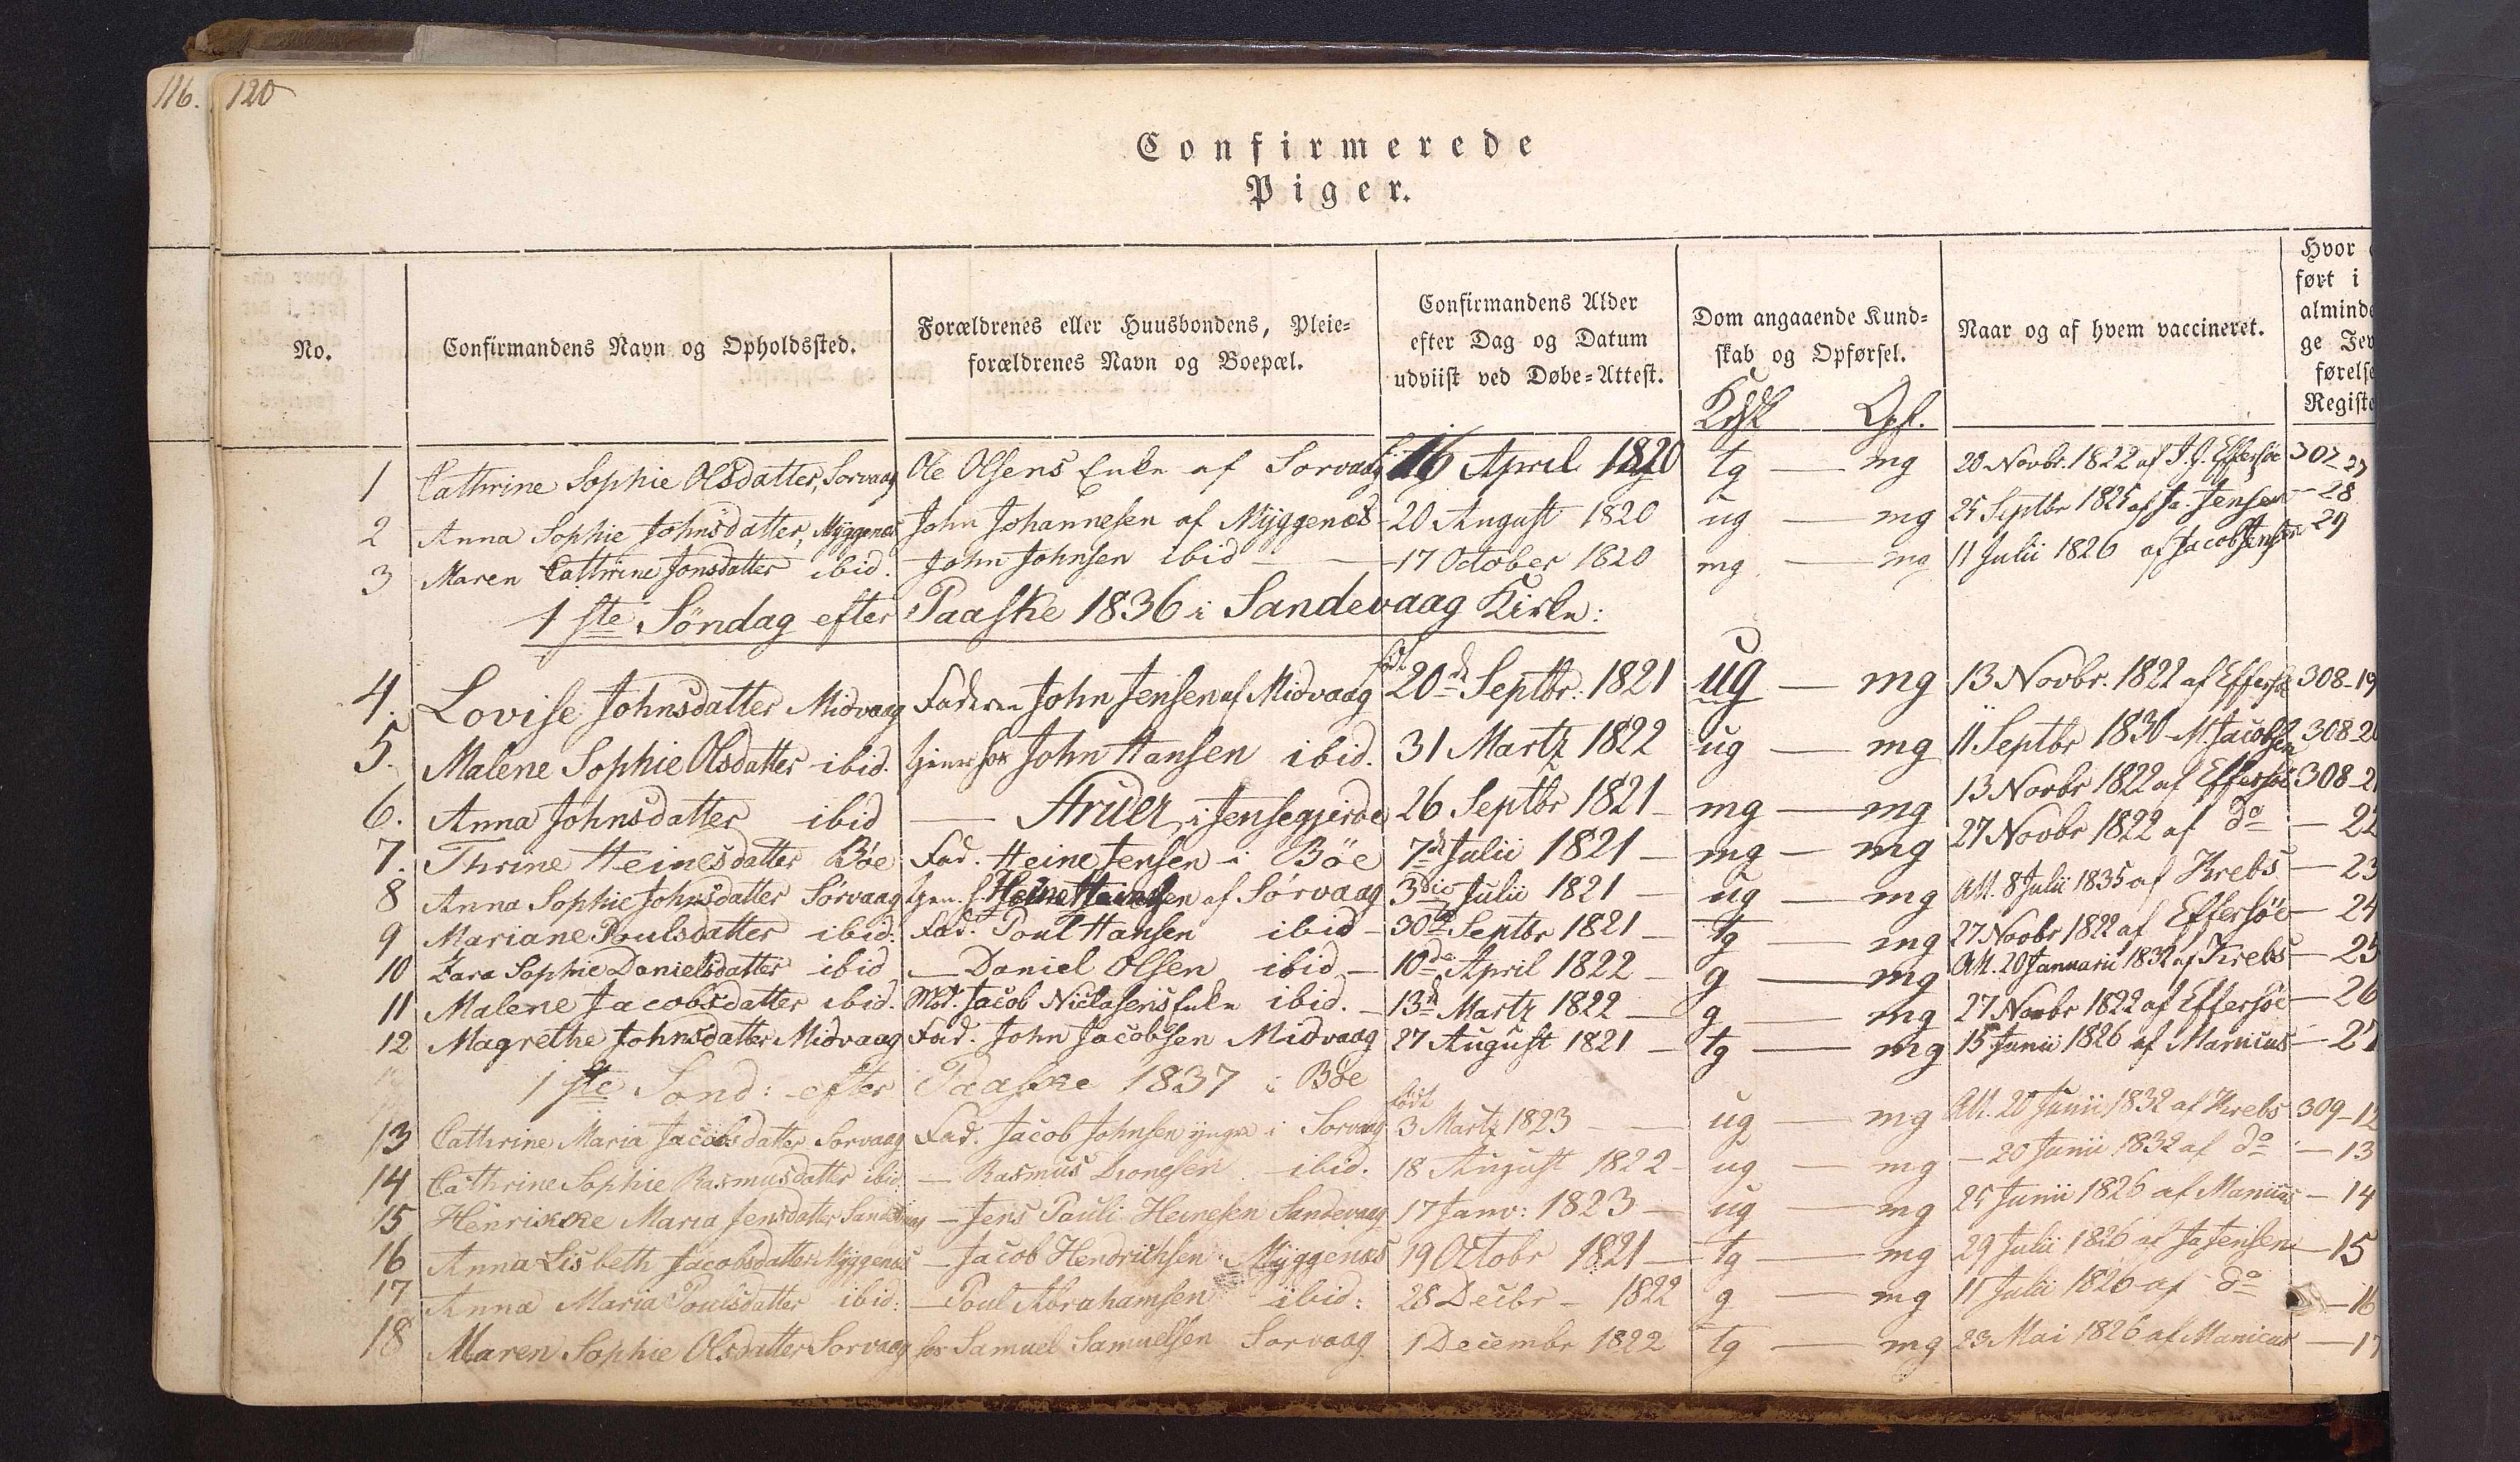 116.
120
Confirmerede
Piger.
No.
Confirmandens Navn og Opholdssted.
Forældrenes eller Huusbondens, Pleie-
forældrenes Navn og Boepæl.
Confirmandens Alder
efter Dag og Datum
udviist ved Døbe-Attest.
Dom angaaende Kund-
skab og Opførsel.
Kdsk Opf.
Naar og af hvem vaccineret.
Hvor
ført i
alminde
ge Jev
førelse
Registe
1 Cathrine Sophie Olsdatter, Sorvaag Ole Olsens Enke af Sorvaag 16 April 1820 tg — mg 20 Novbr. 1822 af J. J. Effersöe 307-27
2 Anna Sophie Johnsdatter, Myggenæs John Johannesen af Myggenæs - 20 August 1820 ug — mg 25 Septbr 1825 af Ja. Jensen - 28
3 Maren Cathrine Jonsdatter ibid. John Johnsen ibid — 17 October 1820 mg — mg 11 Julii 1826 af Jacob Jensen 29
1ste Söndag efter Paaske 1836 i Sandevaag Kirke:
4. Lovise Johnsdatter Midvaag Faderen John Jensen af Midvaag født 20de Septbr. 1821 ug — mg 13 Novbr. 1822 af Effersøe 308-19
5. Malene Sophie Olsdatter ibid. tjener hos John Hansen ibid. 31 Martz 1822 ug — mg 11 Septbr 1830 - M. Jacobsen 308-20
6. Anna Johnsdatter ibid — i Jensegjerde 26 Septbr 1821 - mg — mg 13 Novbr 1822 af Effersöe 308-21
7. Thrine Heinesdatter Böe Fad. Heine Jensen i Böe 7de Julii 1821 - mg — mg 27 Novbr 1822 af do - 22
8 Anna Sophie Johnsdatter Sörvaag tjen. h. Heine Heinesen af Sörvaag 3die Julii 1821 — ug — mg Att. 8 Julii 1835 af Krebs - 23
9 Mariane Poulsdatter ibid: Fad. Poul Hansen ibid - 30te Septbr 1821 — tg — mg 27 Novbr 1822 af Effersöe - 24
10 Zara Sophie Danielsdatter ibid — Daniel Olsen ibid — 10de April 1822 — g — mg Att. 20 Januarii 1832 af Krebs - 25
11 Malene Jacobsdatter ibid. Mod. Jacob Niclasens Enke ibid. - 13de Martz 1822 — g — mg 27 Novbr 1822 af Effersöe - 26
12 Magrethe Johnsdatter Midvaag Fad. John Jacobsen Midvaag 27 August 1821 — tg — mg 15 Junii 1826 af Manicus - 27
1ste Sond: efter Paaske 1837 i Böe
13 Cathrine Maria Jacobsdatter Sorvaag Fad. Jacob Johnsen yngre i Sorvaag født 3 Martz 1823 — ug — mg Att. 20 Junii 1832 af Krebs 309-12
14 Cathrine Sophie Rasmusdatter ibid. — Rasmus Dionesen ibid. 18 August 1822 - ug — mg - 20 Junii 1832 af do - 13
15 Henrikke Maria Jensdatter Sandevaag - Jens Pauli Heinesen Sandevaag 17 Janv: 1823 — ug — mg 25 Junii 1826 af Manicus - 14
16 Anna Lisbeth Jacobsdatter Myggenæs - Jacob Hendrichsen Myggenæs 19 Octobr 1821 — tg — mg 29 Julii 1826 af Ja Jensen - 15
17 Anna Maria Poulsdatter ibid: - Poul Abrahamsen ibid: 28 Decbr - 1822 g — mg 11 Julii 1826 af do - 16
18 Maren Sophie Olsdatter Sorvaag hos Samuel Samuelsen Sorvaag 1 Decembr 1822 tg — mg 23 Mai 1826 af Manicus - 17